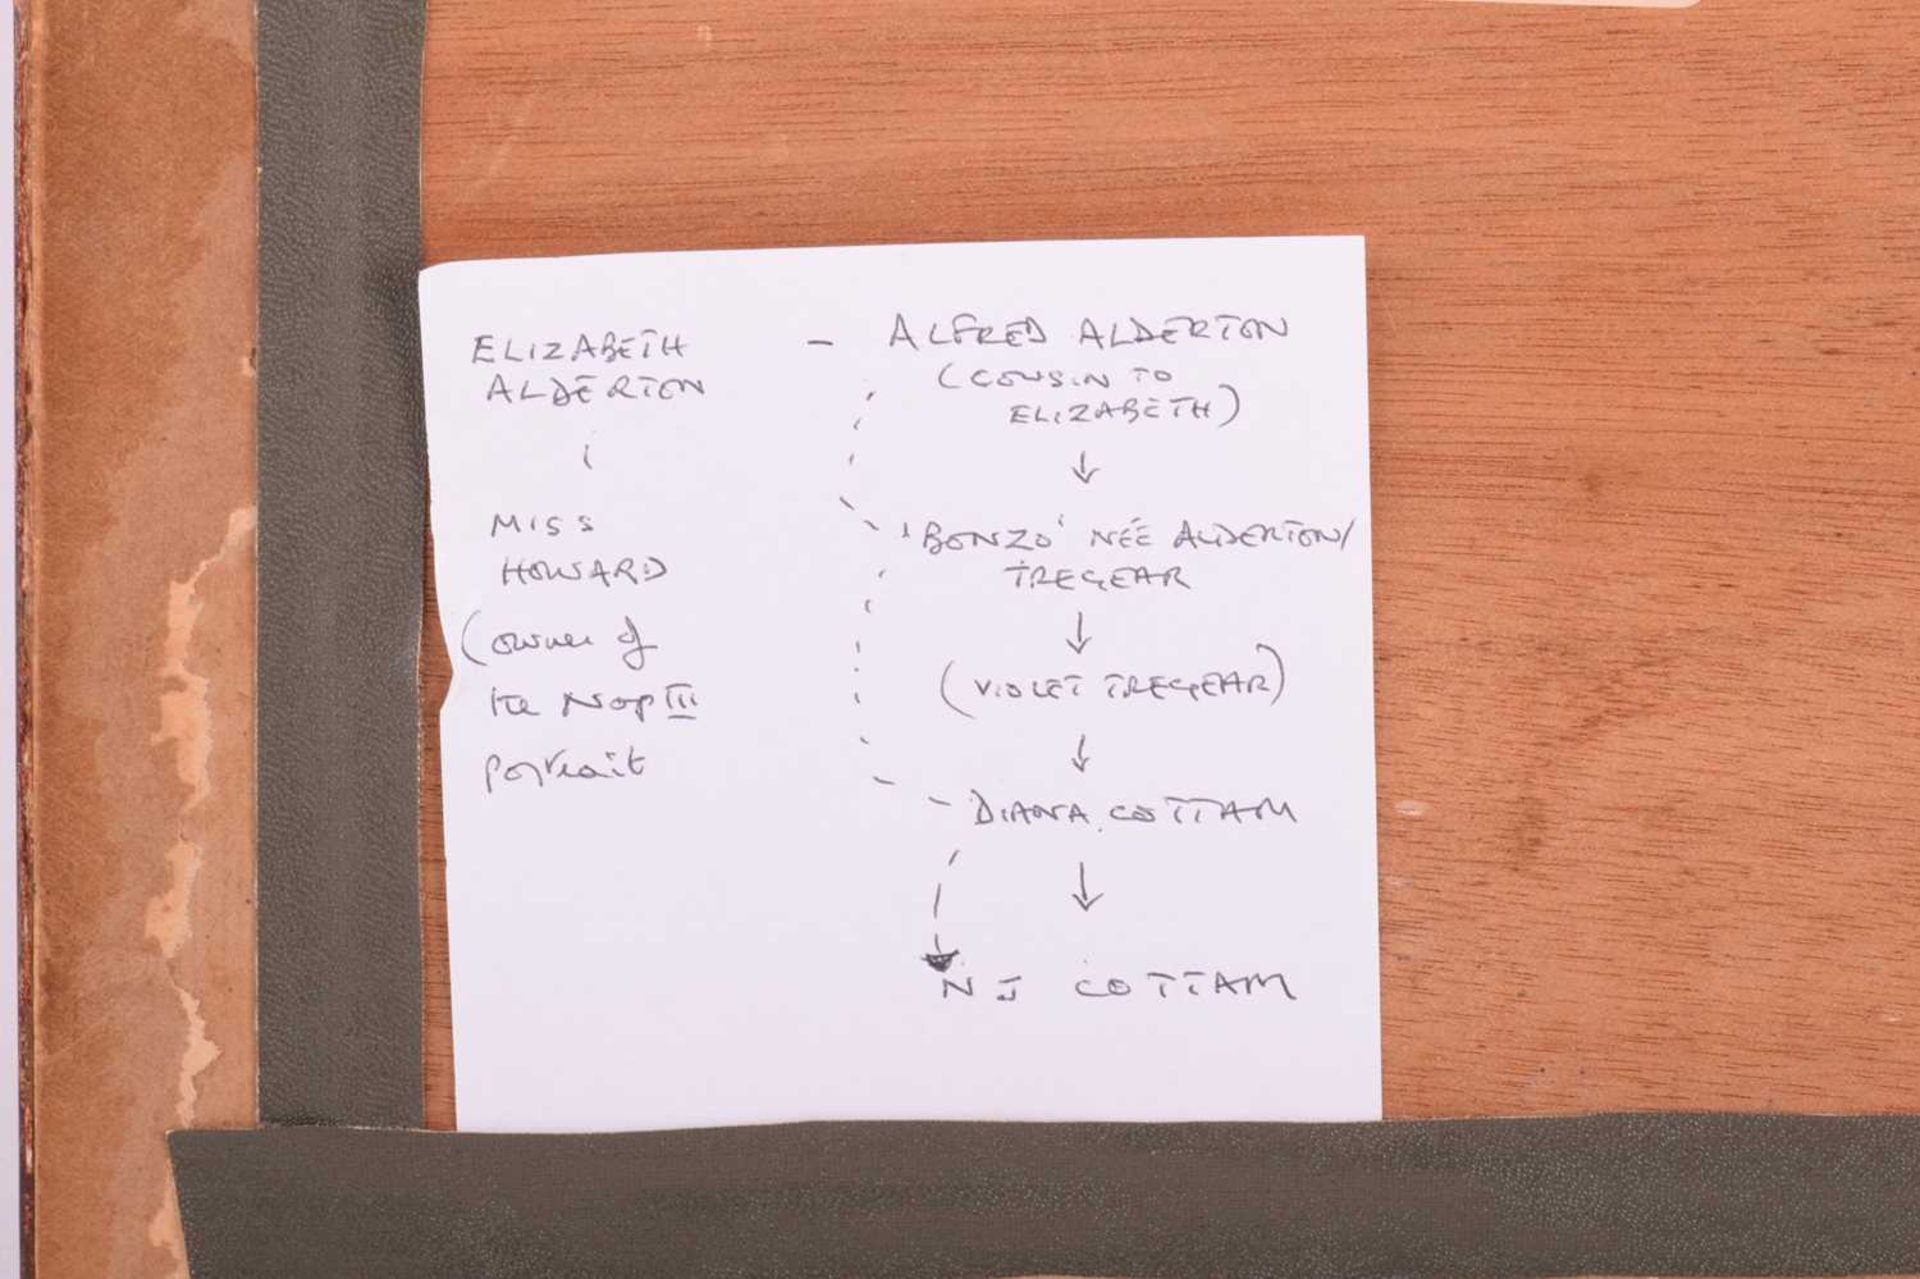 ELIZABETH
ALDERTON
MISS
HOWARD
(owner of
the Nap III
portrait
- ALFRED ALDERTON
(COUSIN TO
ELIZABETH)
'BONZO' NÉE ALDERTON/
TREGEAR
(VIOLET TREGEAR)
DIANA COTTAM
N J COTTAM